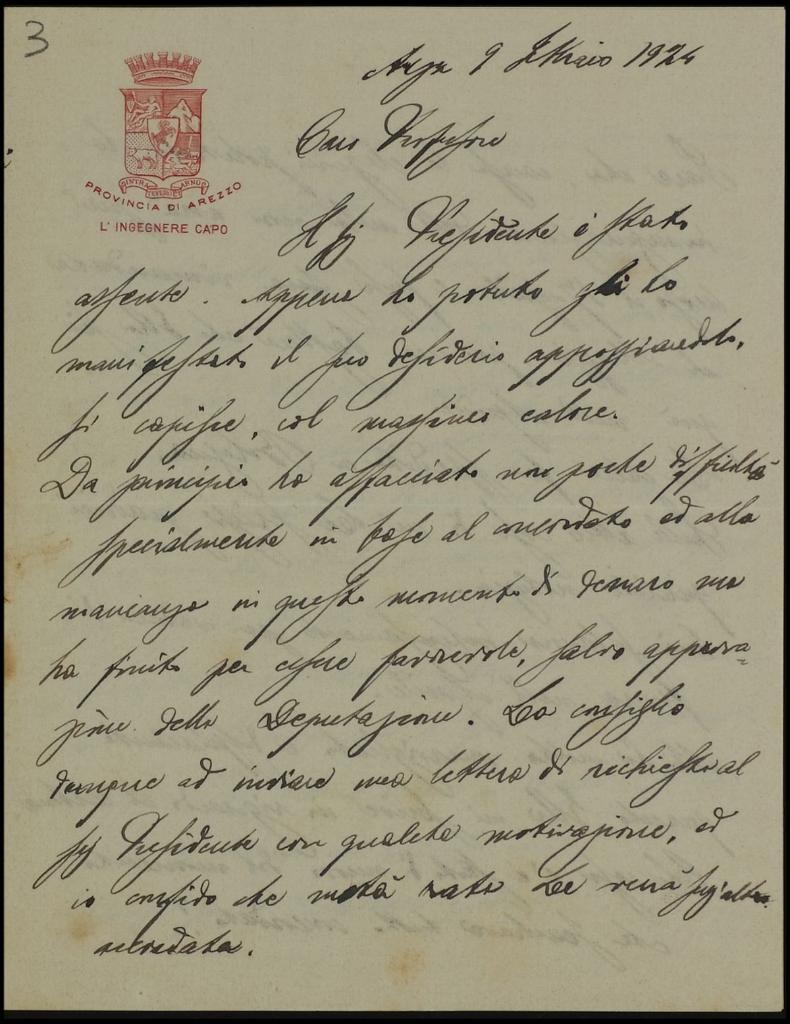 3
9 Febbraio 1924
PROVINCIA DI AREZZO
L'INGEGNERE CAPO
Caro Professore
Il Sig Presidente è stato
assente. Appena ho potuto gli ho
manifestato il suo desiderio appoggiandolo,
si capisce, col massimo calore.
Da principio ha affacciato non poche difficoltà
specialmente in base al concordato ed alla
mancanza in questo momento di denaro ma
ha finito per essere favorevole, salvo approva=
zione della Deputazione. La consiglio
dunque ad inviare una lettera di richiesta al
Sig Presidente con qualche motivazione, ed
io confido che metà Le verrà senz'altro
accordata.